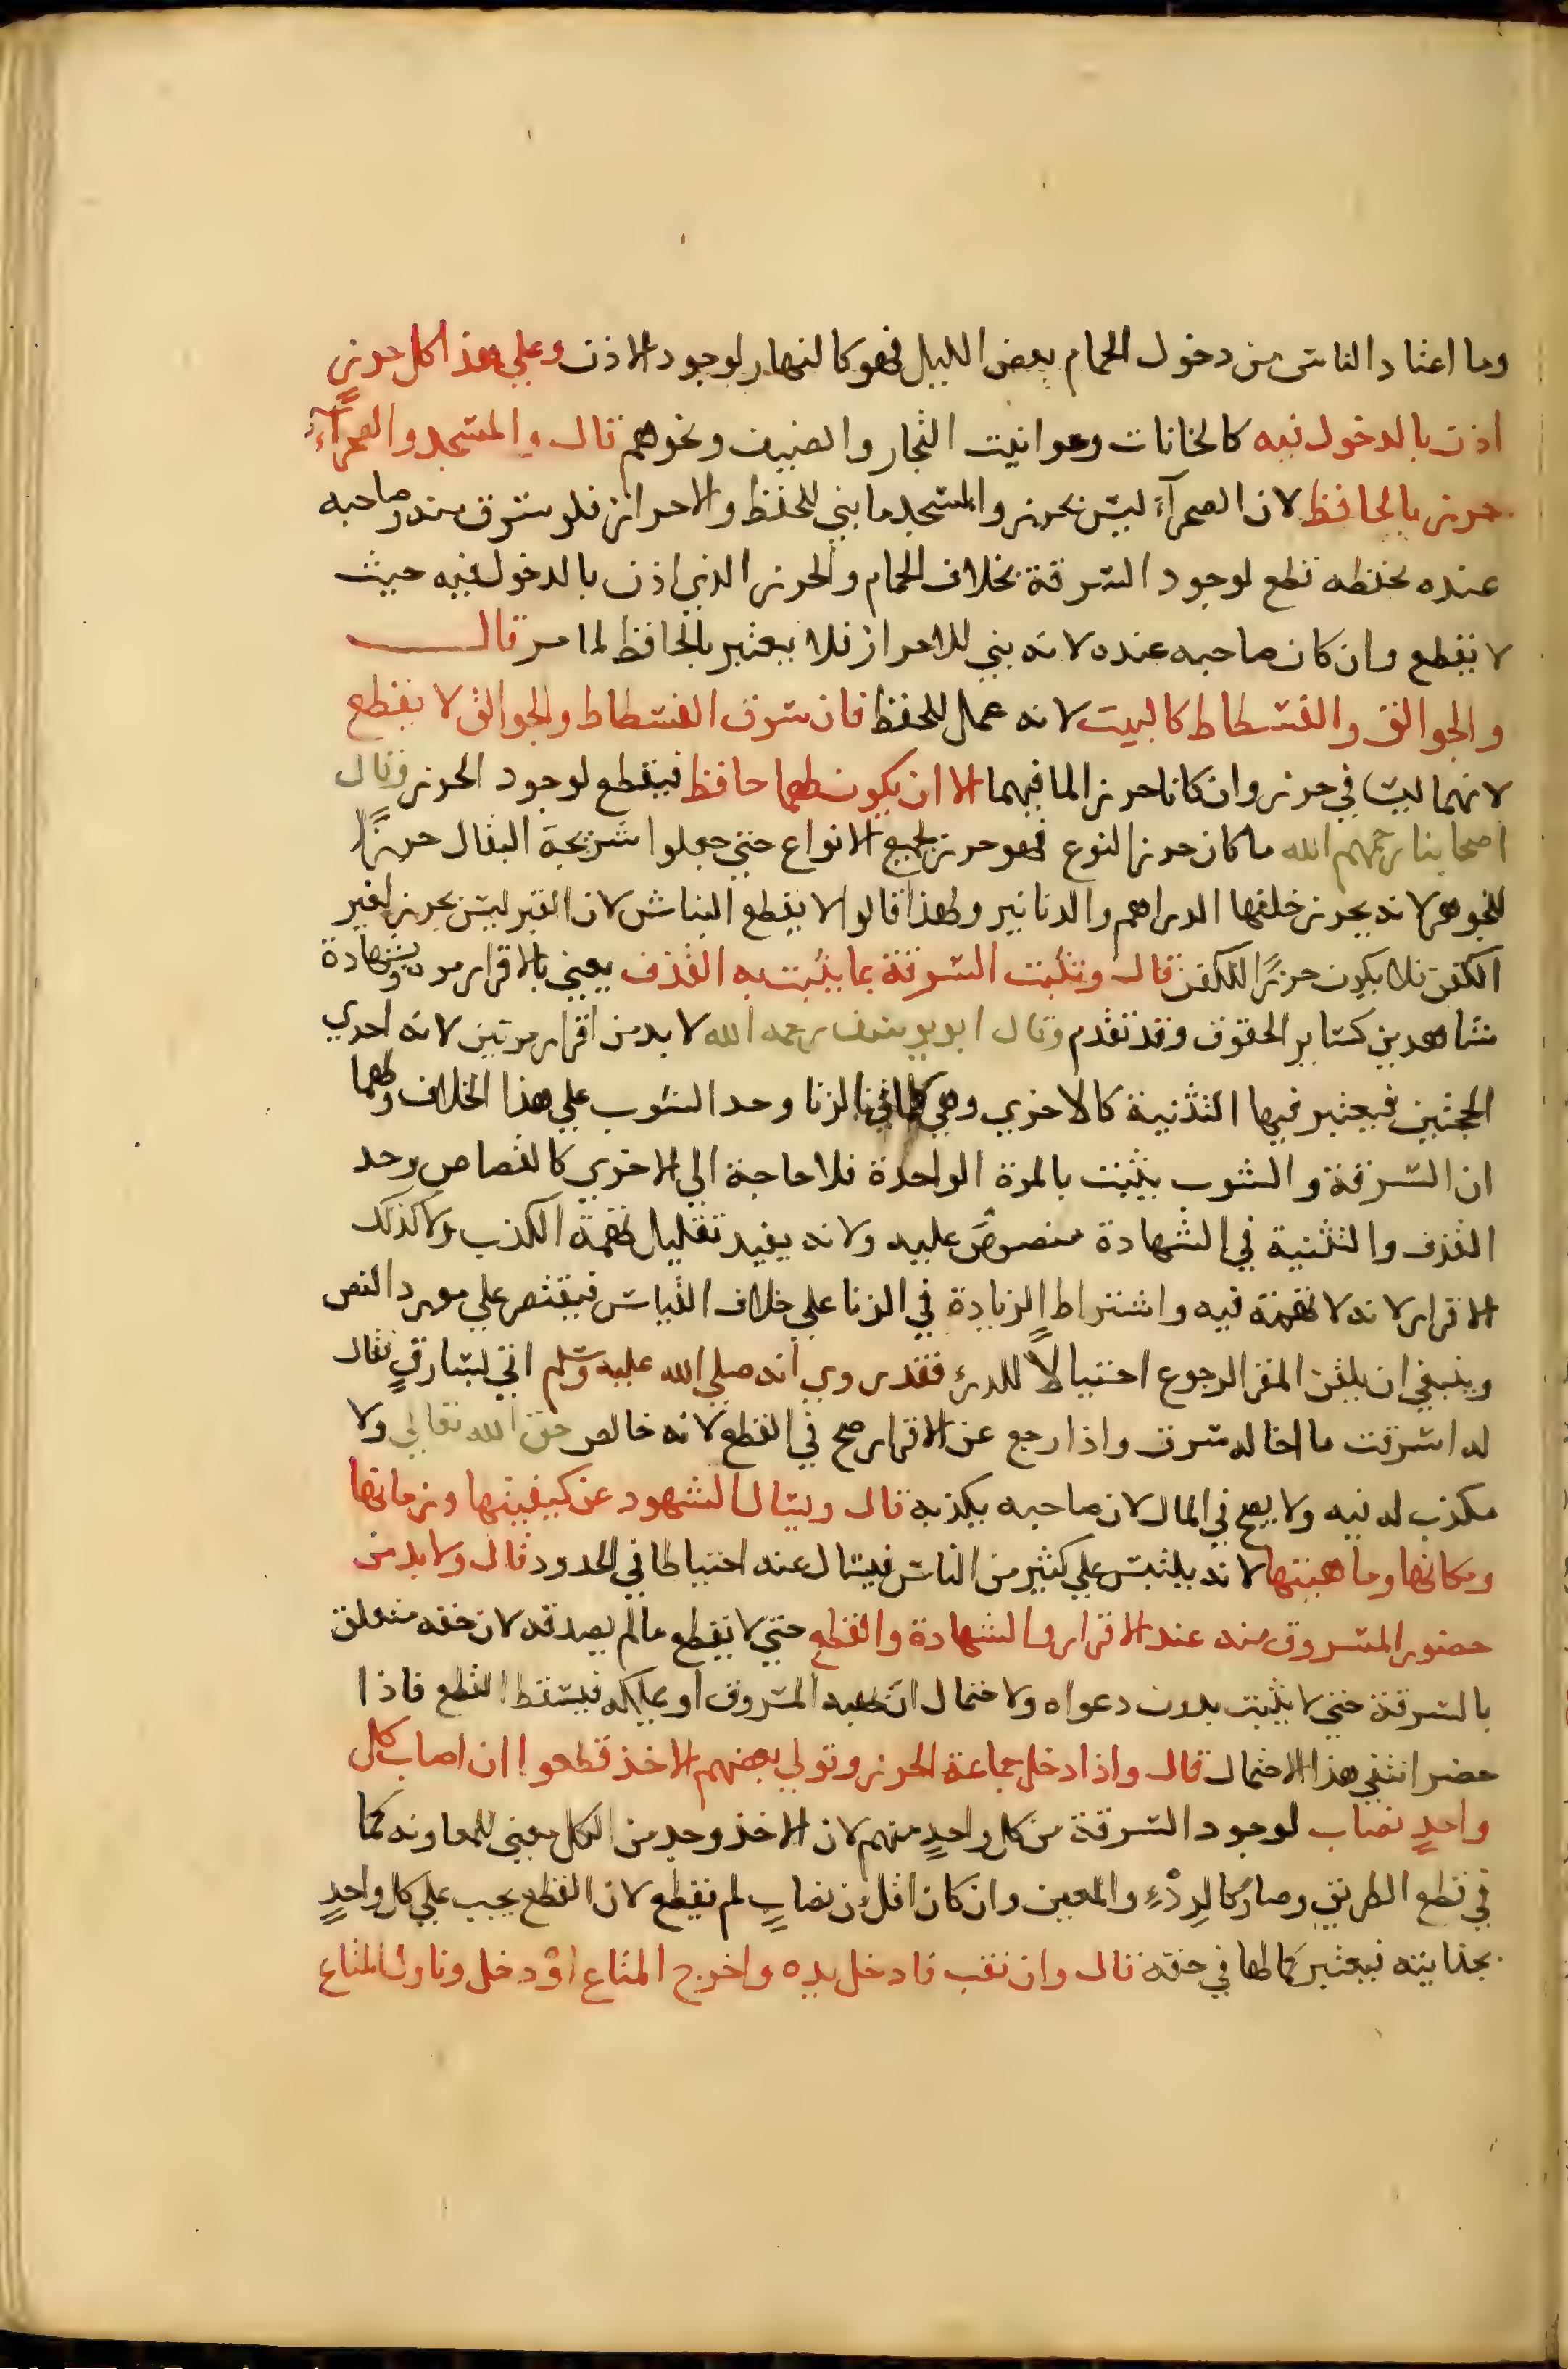 وما اعتاد الناس من دخول الحمام بعض الليل فهو كالنهار لوجود الاذن وعلي هذا كل حرزٍ
اذن بالدخول فيه كالخانات وحوانيت التجار والضيف ونحوهم قال والمسجد والصحرآء
حرز بالحافظ لان الصحرآء ليس بحرز والمسجد ما بني للحفظ والاحراز فلو سرق منه وصاحبه
عنده يحفظه قطع لوجود السرقة بخلاف الحمام والحرز الذي اذن بالدخول فيه حيث
لا يقطع وان كان صاحبه عنده لانه بني للاحراز فلا يعتبر بالحافظ لما مر قال
والجوالق والفسطاط كالبيت لانه عمل للحفظ فان سرق الفسطاط والجوالق لا يقطع
لانهما ليسا في حرز وان كانا حرزا لما فيهما الا ان يكون لهما حافظ فيقطع لوجود الحرز وقال
اصحابنا رحمهم الله ما كان حرزا لنوع فهو حرز لجميع الانواع حتي جعلوا شريجة البقال حرزًا
للجوهر لانه يحرز خلفها الدراهم والدنانير ولهذا قالوا لا يقطع النباش لان القبر ليس بحرز لغير
الكفن فلا يكون حرزًا للكفن قال وتثبت السرقة بما يثبت به القذف يعني بالاقرار مرة وبشهادة
شاهدين كساير الحقوق وقد تقدم وقال ابو يوسف رحمه الله لا بد من اقرار مرتين لانه احدي
الحجتين فيعتبر فيها التثنية كالاخري وهي كما في الزنا وحد الشرب علي هذا الخلاف ولهما
ان السرقة والشرب يثبت بالمرة الواحدة فلا حاجة الي الاخري كالقصاص وحد
القذف والتثنية في الشهادة منصوصٌ عليه ولانه يفيد تقليل تهمة الكذب ولا كذلك
الاقرار لانه لا تهمة فيه واشتراط الزيادة في الزنا علي خلاف القياس فيقتصر علي مورد النص
وينبغي ان يلقن المقر الرجوع احتيالًا للدرء فقد روي انه صلي الله عليه وسلم اتي بسارقٍ فقال
له اسرقت ما اخاله سرق واذا رجع عن الاقرار صح في القطع لانه خالص حق الله تعالي ولا
مكذب له فيه ولا يصح في المال لان صاحبه يكذبه قال ويسال الشهود عن كيفيتها وزمانها
ومكانها وماهيتها لانه يلتبس علي كثير من الناس فيسال عنه احتياطا في الحدود قال ولا بد من
حضور المسروق منه عند الاقرار والشهادة والقطع حتي لا يقطع ما لم يصدقه لان حقه متعلق
بالسرقة حتي لا يثبت بدون دعواه ولاحتمال ان يهبه المسروق او يملكه فيسقط القطع فاذا
حضر انتفي هذا الاحتمال قال واذا دخل جماعة الحرز وتولي بعضهم الاخذ قطعوا ان اصاب كل
واحدٍ نصاب لوجود السرقة من كل واحدٍ منهم لان الاخذ وجد من الكل معني للمعاونه كما
في قطع الطريق وصار كالرِدْءِ والمعين وان كان اقل من نصابٍ لم يقطع لان القطع يجب علي كل واحدٍ
بجنايته فيعتبر كمالها في حقه قال وان نقب فادخل يده واخرج المتاع اوْ دخل وناول المتاع